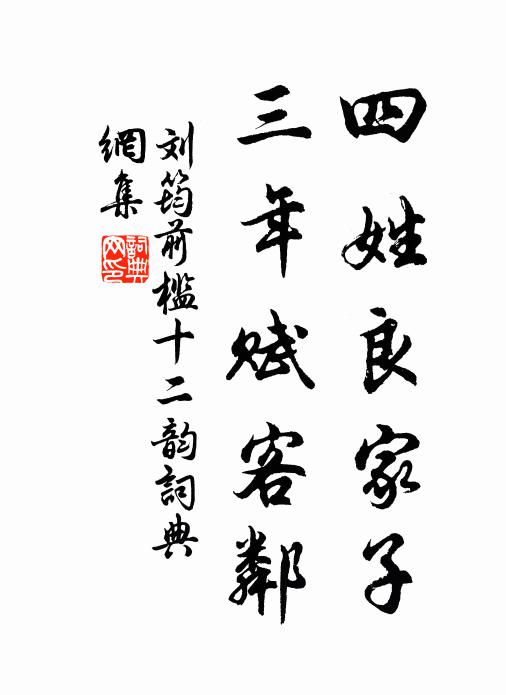 四姓良家子
三年赋客鄰
刘筠前槛十二韵詞典
網集
詞典
网印